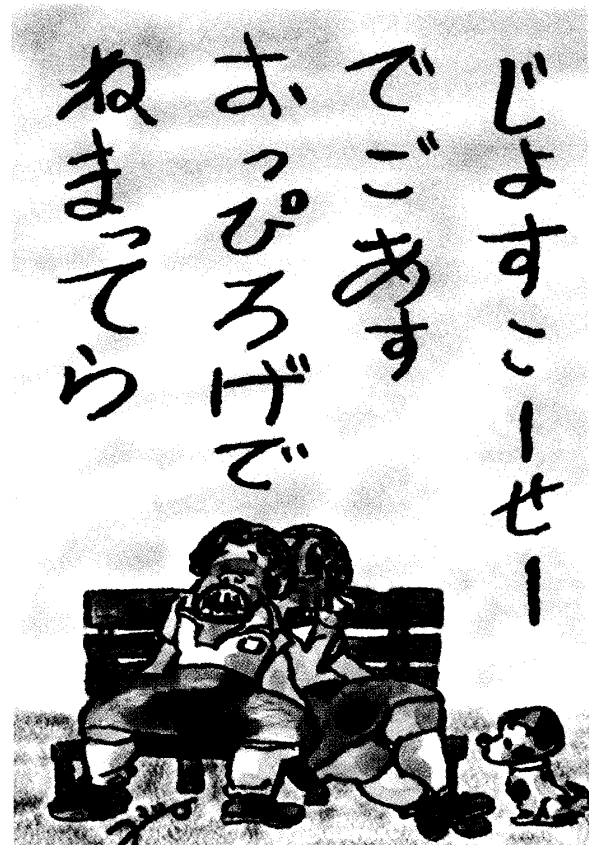 じょすこーせー
でごあす
おっぴろげで
ねまってら